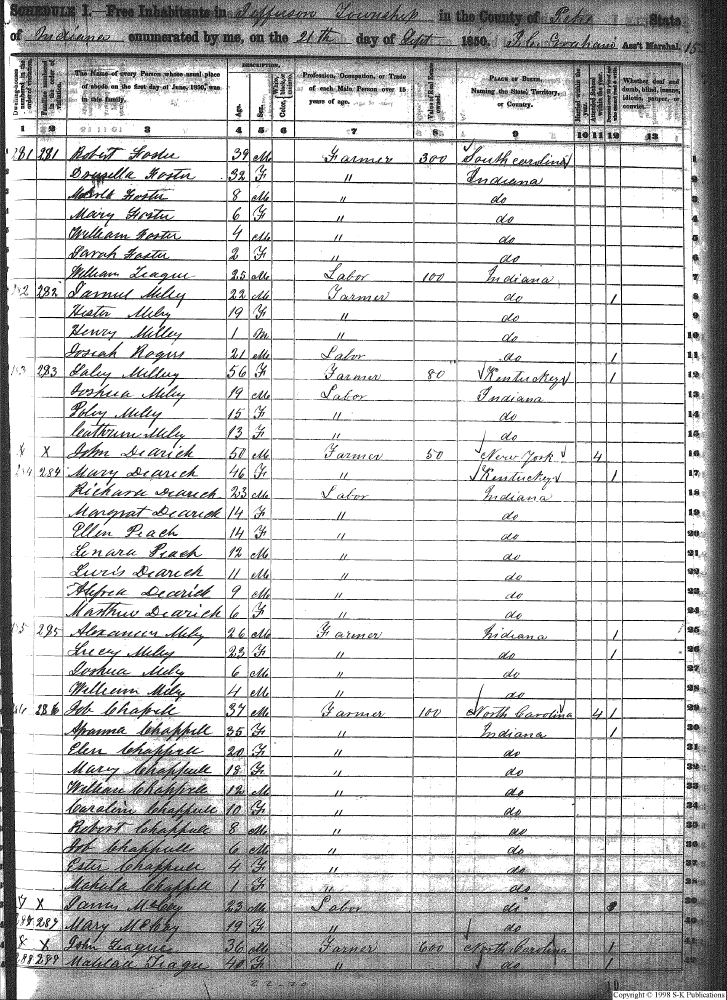 SCHEDULE I.—Free Inhabitants in Jefferson Township in the County of Pike State
of Indiana enumerated by me, on the 21th day of Sept 1850. Ass't Marshal. 15
DESCRIPTION.
The Name of every Person whose usual place of abode on the first day of June, 1850, was in this family.
Age.
Sex.
Profession, Occupation, or Trade of each Male Person over 15 years of age.
Value of Real Estate owned.
PLACE OF BIRTH. Naming the State, Territory, or Country.
Whether deaf and dumb, blind, insane, idiotic, pauper, or convict.
1 2 3 4 5 6 7 8 9 10 11 12 13
281 281 Robert Foster 39 M Farmer 300 South Carolina 1
Foster 32 F " Indiana 2
Foster 8 M " do 3
Mary Foster 6 F " do 4
William Foster 4 M " do 5
Sarah Foster 2 F " do 6
William Teague 25 M Labor 100 Indiana 7
282 282 Samuel Miley 22 M Farmer do 1 8
Hester Miley 19 F " do 9
Henry Milley 1 M " do 10
Josiah Rogers 21 M Labor do 1 11
283 283 Milley 56 F Farmer 80 Kentucky 1 12
Joshua Miley 19 M Labor Indiana 13
Poley Miley 15 F " do 14
Miley 13 F " do 15
X X John Dearick 50 M Farmer 50 New York 4 16
284 284 Mary Dearick 46 F " Kentucky 1 17
Richard Dearick 23 M Labor Indiana 18
Margrat Dearick 14 F " do 19
Ellen Peach 14 F " do 20
Lenard Peach 12 M " do 21
Lewis Dearick 11 M " do 22
Alfred Dearick 9 M " do 23
Dearick 6 F " do 24
285 285 Alexander Miley 26 M Farmer Indiana 1 25
Lucey Miley 23 F " do 1 26
Joshua Miley 6 M " do 27
William Miley 4 M " do 28
286 286 Job Chapell 37 M Farmer 100 North Carolina 4 1 29
Chappell 35 F " Indiana 1 30
Chappell 20 F " do 31
Mary Chappell 18 F " do 32
William Chappell 12 M " do 33
Caroline Chappell 10 F " do 34
Robert Chappell 8 M " do 35
Job Chappell 6 M " do 36
Ester Chappell 4 F " do 37
Mahala Chappell 1 F " do 38
X X James McCoy 23 M Labor do 39
287 287 Mary McCoy 19 F " do 40
X X John Teague 36 M Farmer 600 North Carolina 1 41
288 288 Matilda Teague 40 F " do 1 42
Copyright © 1998 S-K Publications